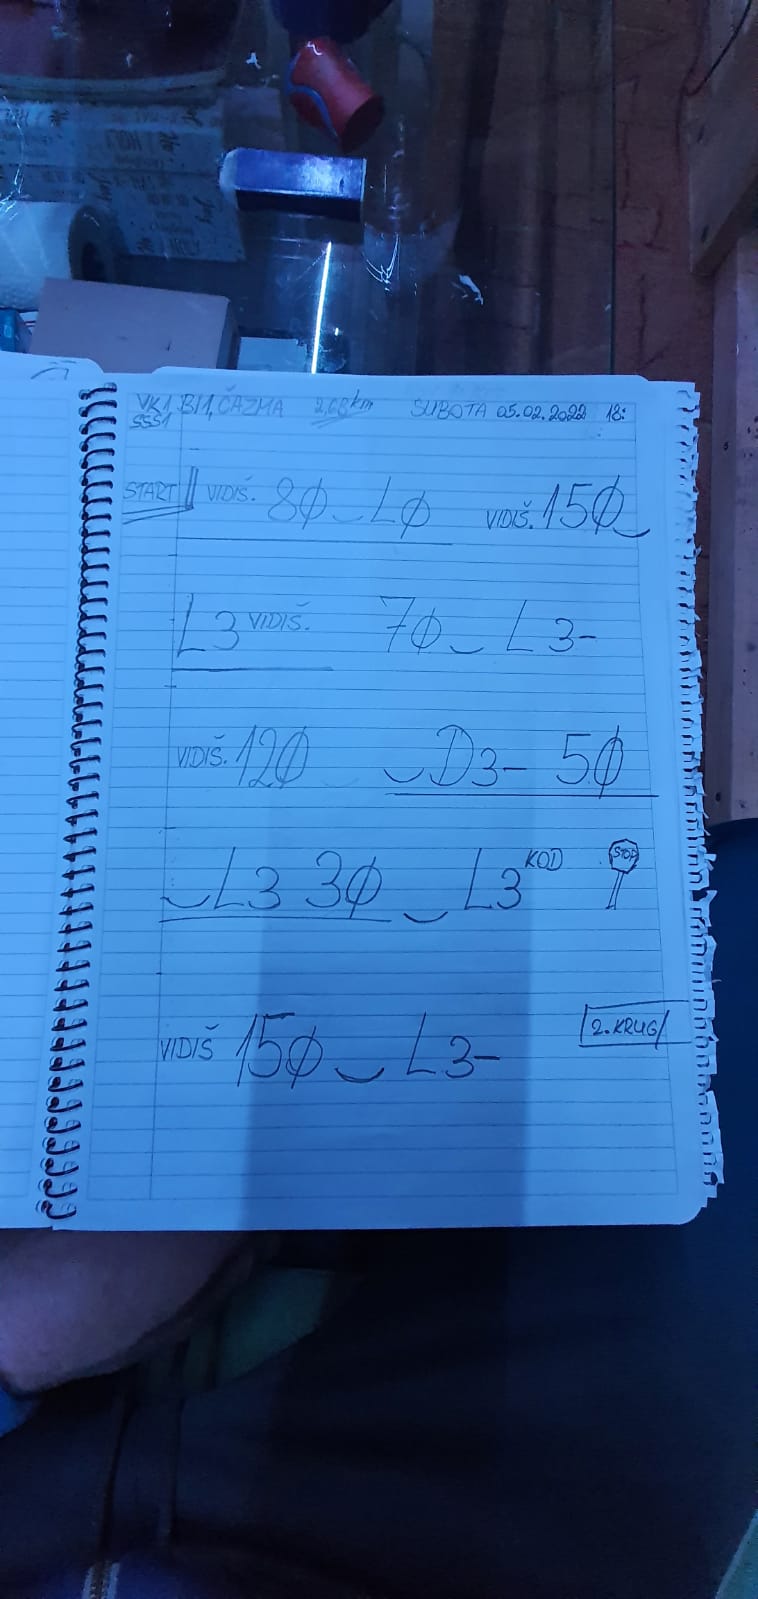 VK1, BJ1, ČAZMA 2,68 km SUBOTA 05.02.2022 18:
SSS1
START VIDIŠ. 80 L0 VIDIŠ. 150
L3 VIDIŠ. 70 L3-
VIDIŠ. 120 D3- 50
L3 30 L3 KOD STOP
VIDIŠ 150 L3- 2. KRUG